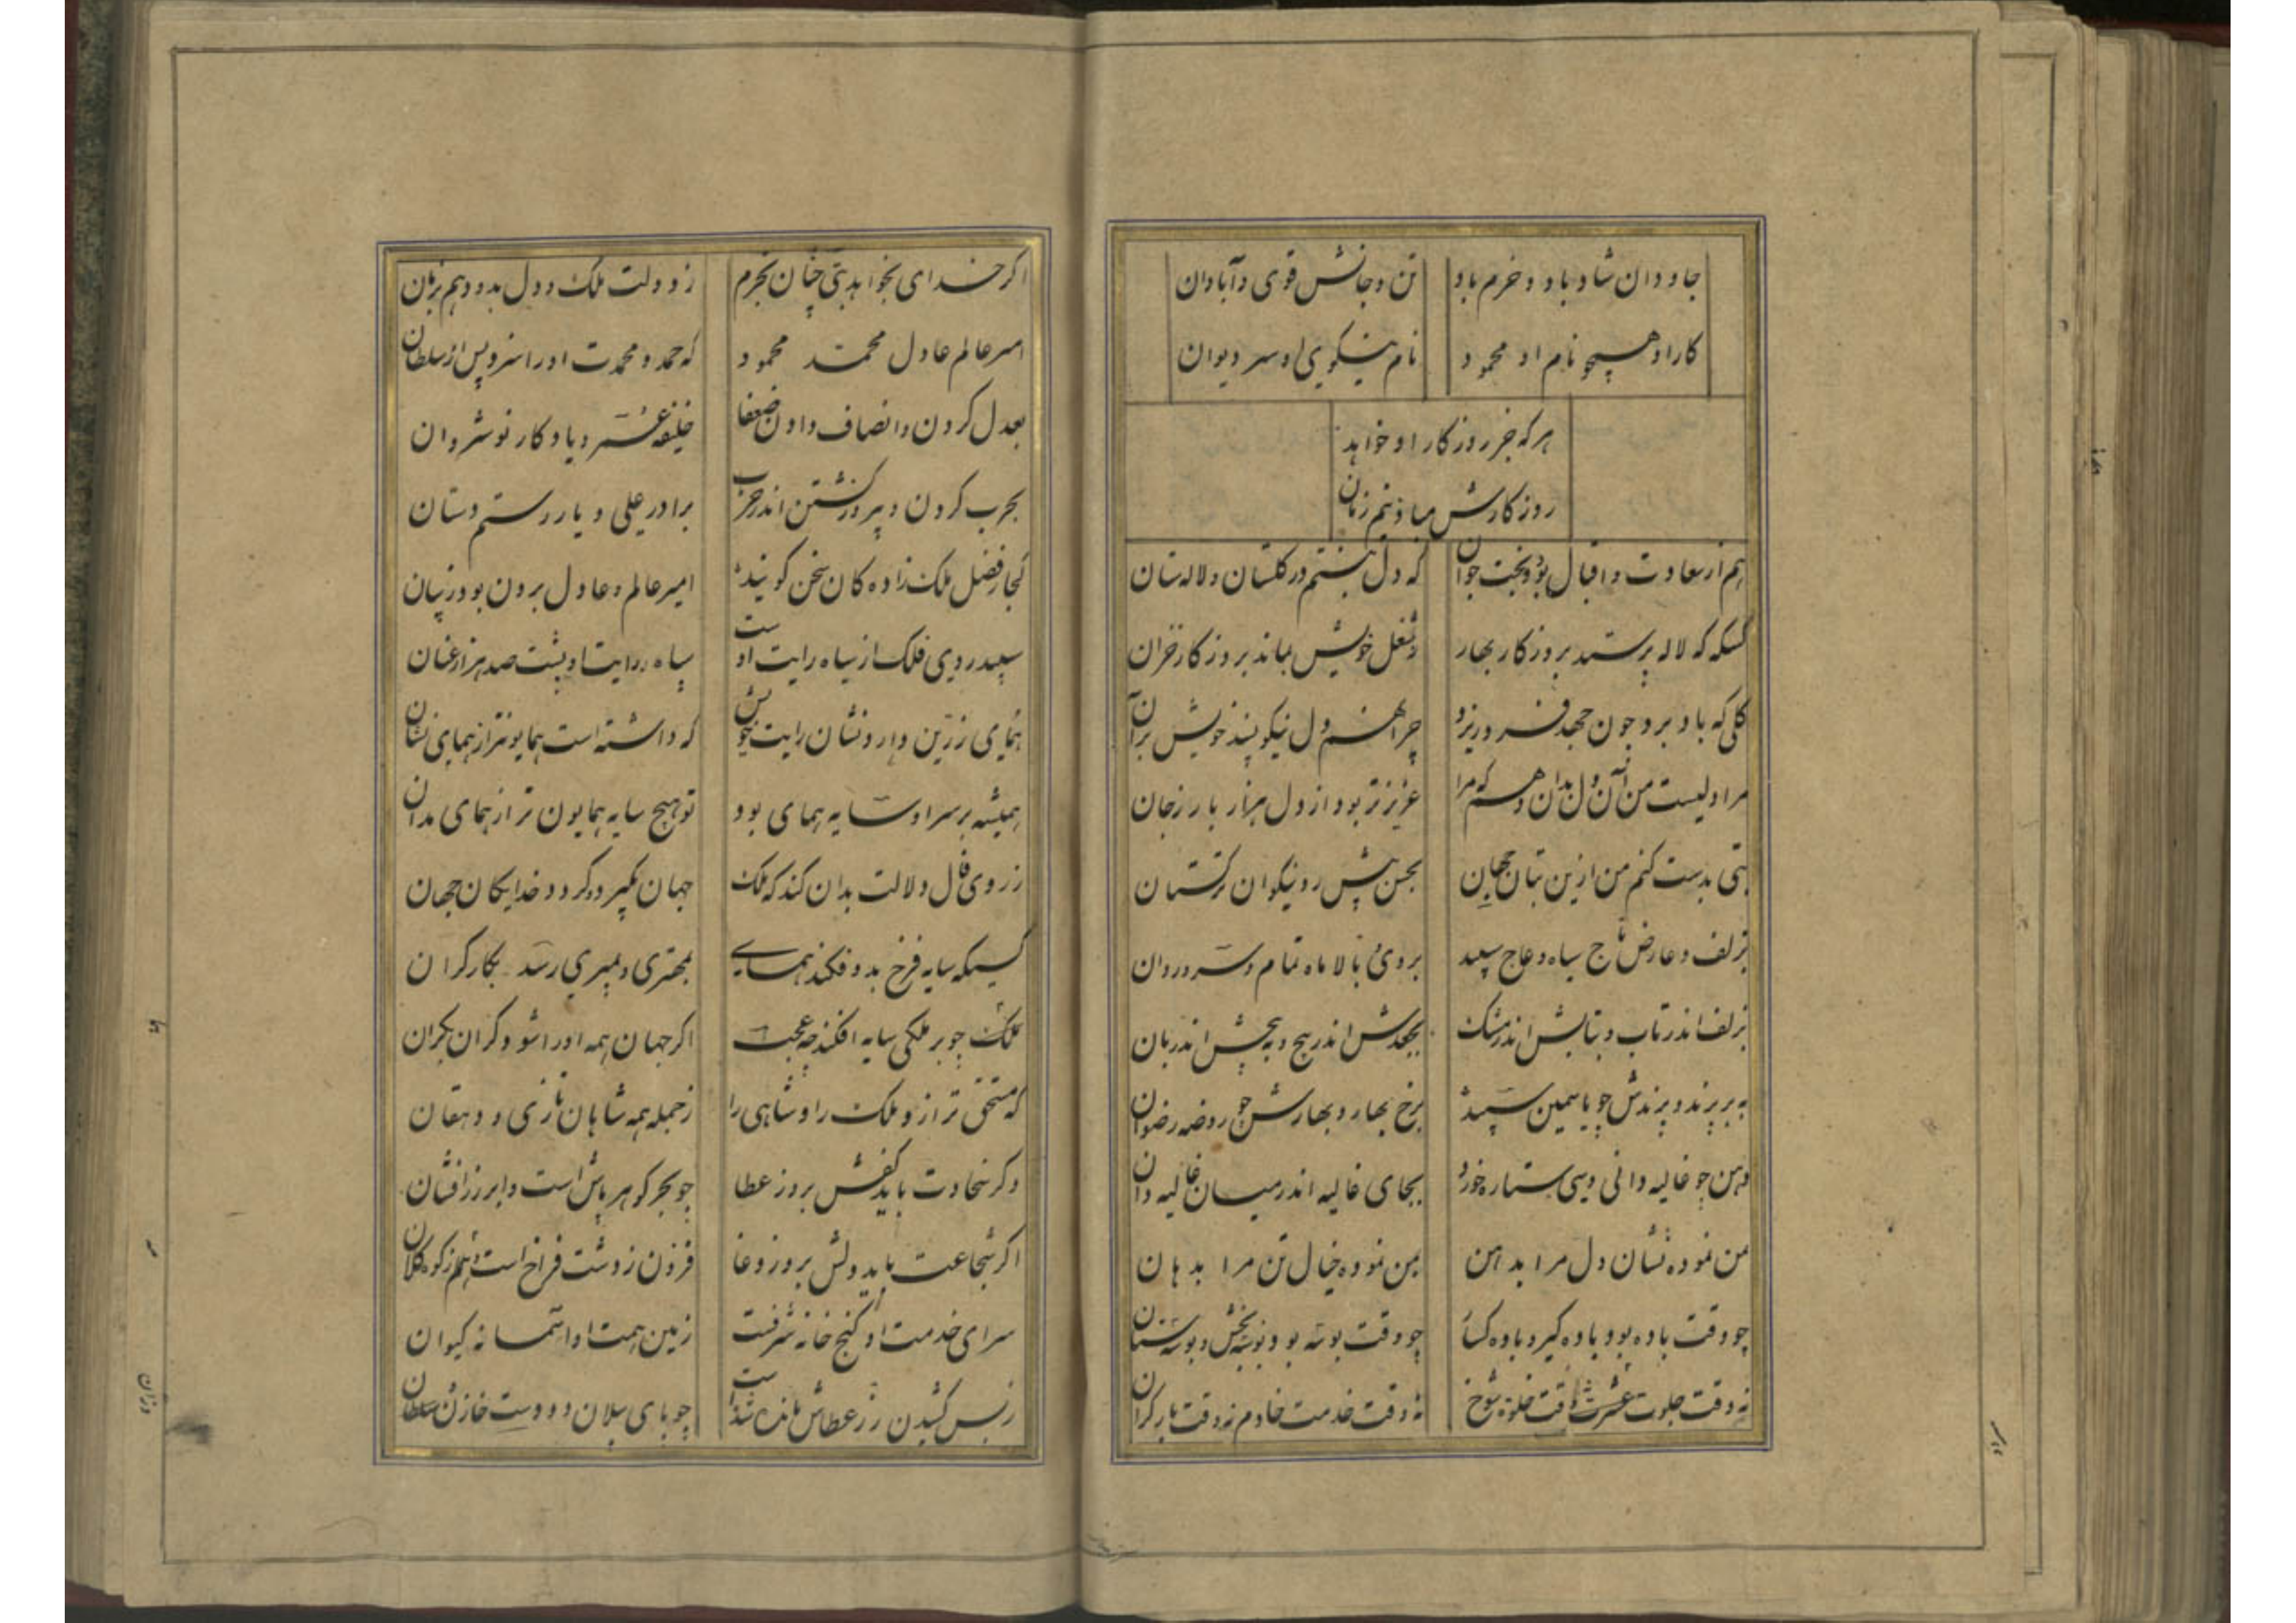 جاودان شاد باد و خرم باد تن و جانش قوی و آبادان
کار او همچو نام او محمود نام نیکویی او سر دیوان
هر که جز روزکار او خواهد
روزکارش مباد نیم زمان
هم از سعادت و اقبال بود و بخت جوان که دل نبستم در کلستان و لاله ستان
کسیکه که لاله پرستد بروزکار بهار ز شغل خویش بماند بروزکار خزان
کلی که باد برو چون جهد فرو ریزد چرا نهم دل نیکو پسند خویش بر آن
مرا دلیست من آن دل بدان دهم که مرا عزیزتر بود از دل هزار بار ز جان
بتی بدست کنم من ازین بتان جهان بحسن پیش رو نیکوان ترکستان
بزلف و عارض ساج سیاه و عاج سپید بروی و بالا ماه تمام و سرو روان
بزلفش اندر تاب و بتابش اندر مشک بجعدش اندر پیچ و به پیچش اندر بان
به بر پرند و پرندش چو یاسمین سپید برخ بهار و بهارش چو روضه رضوان
دهن چو غالیه دانی و سی ستاره خورد بجای غالیه اندر میان غالیه دان
بمن نموده نشان دل مرا بدهن بمن نموده خیال تن مرا بدهان
چو وقت باده بود باده کیر و باده کسار چو وقت بوسه بود بوسه بخش و بوسه ستان
نه وقت جلوت عشرت نه وقت خلوة شوخ نه وقت خدمت خادم نه وقت بار کران
اکر خدای بخواهد بتی چنان بخرم ز دولت ملک و دل بدو دهم بزبان
امیر عالم عادل محمد محمود که حمد و محمدت او را سزد پس از سلطان
بعدل کردن و انصاف دادن ضعفا خلیفه عمر و یادکار نوشروان
بحرب کردن و پیروز کشتن اندر حرب برادر علی و یار رستم دستان
کجا ز فضل ملک زاده کان سخن کویند امیر عالم و عادل برون بود ز بیان
سپید روی فلک از سیاه رایت اوست سیاه رایت او پشت صد هزار عنان
همای زرین دارد نشان رایت خویش که داشته است همایونتر از همای نشان
همیشه بر سر او سایه همای بود تو هیچ سایه همایون تر از همای مدان
ز روی فال دلالت بدان کند که ملک جهان بکیرد و کردد خدایکان جهان
کسیکه سایه فرخ بدو فکند همای بمهتری و بمیری رسد بکار کران
ملک چو بر ملکی سایه افکند چه عجب اکر جهان همه او را شود کران بکران
که مستحق تر ازو ملک را و شاهی را ز جمله همه شاهان تازی و دهقان
وکر سخاوت باید کفش بروز عطا چو بحر کوهر پاش است و ابر زرافشان
اکر شجاعت باید دلش بروز وغا فزون ز دشت فراخ است و هم ز کوه کلان
سرای خدمت او کنج خانه شرفست زمین همت او آسمانه کیوان
ز بس کشیدن زر عطاش مانده شداست چو پای پیلان دو دست خازن سلطان